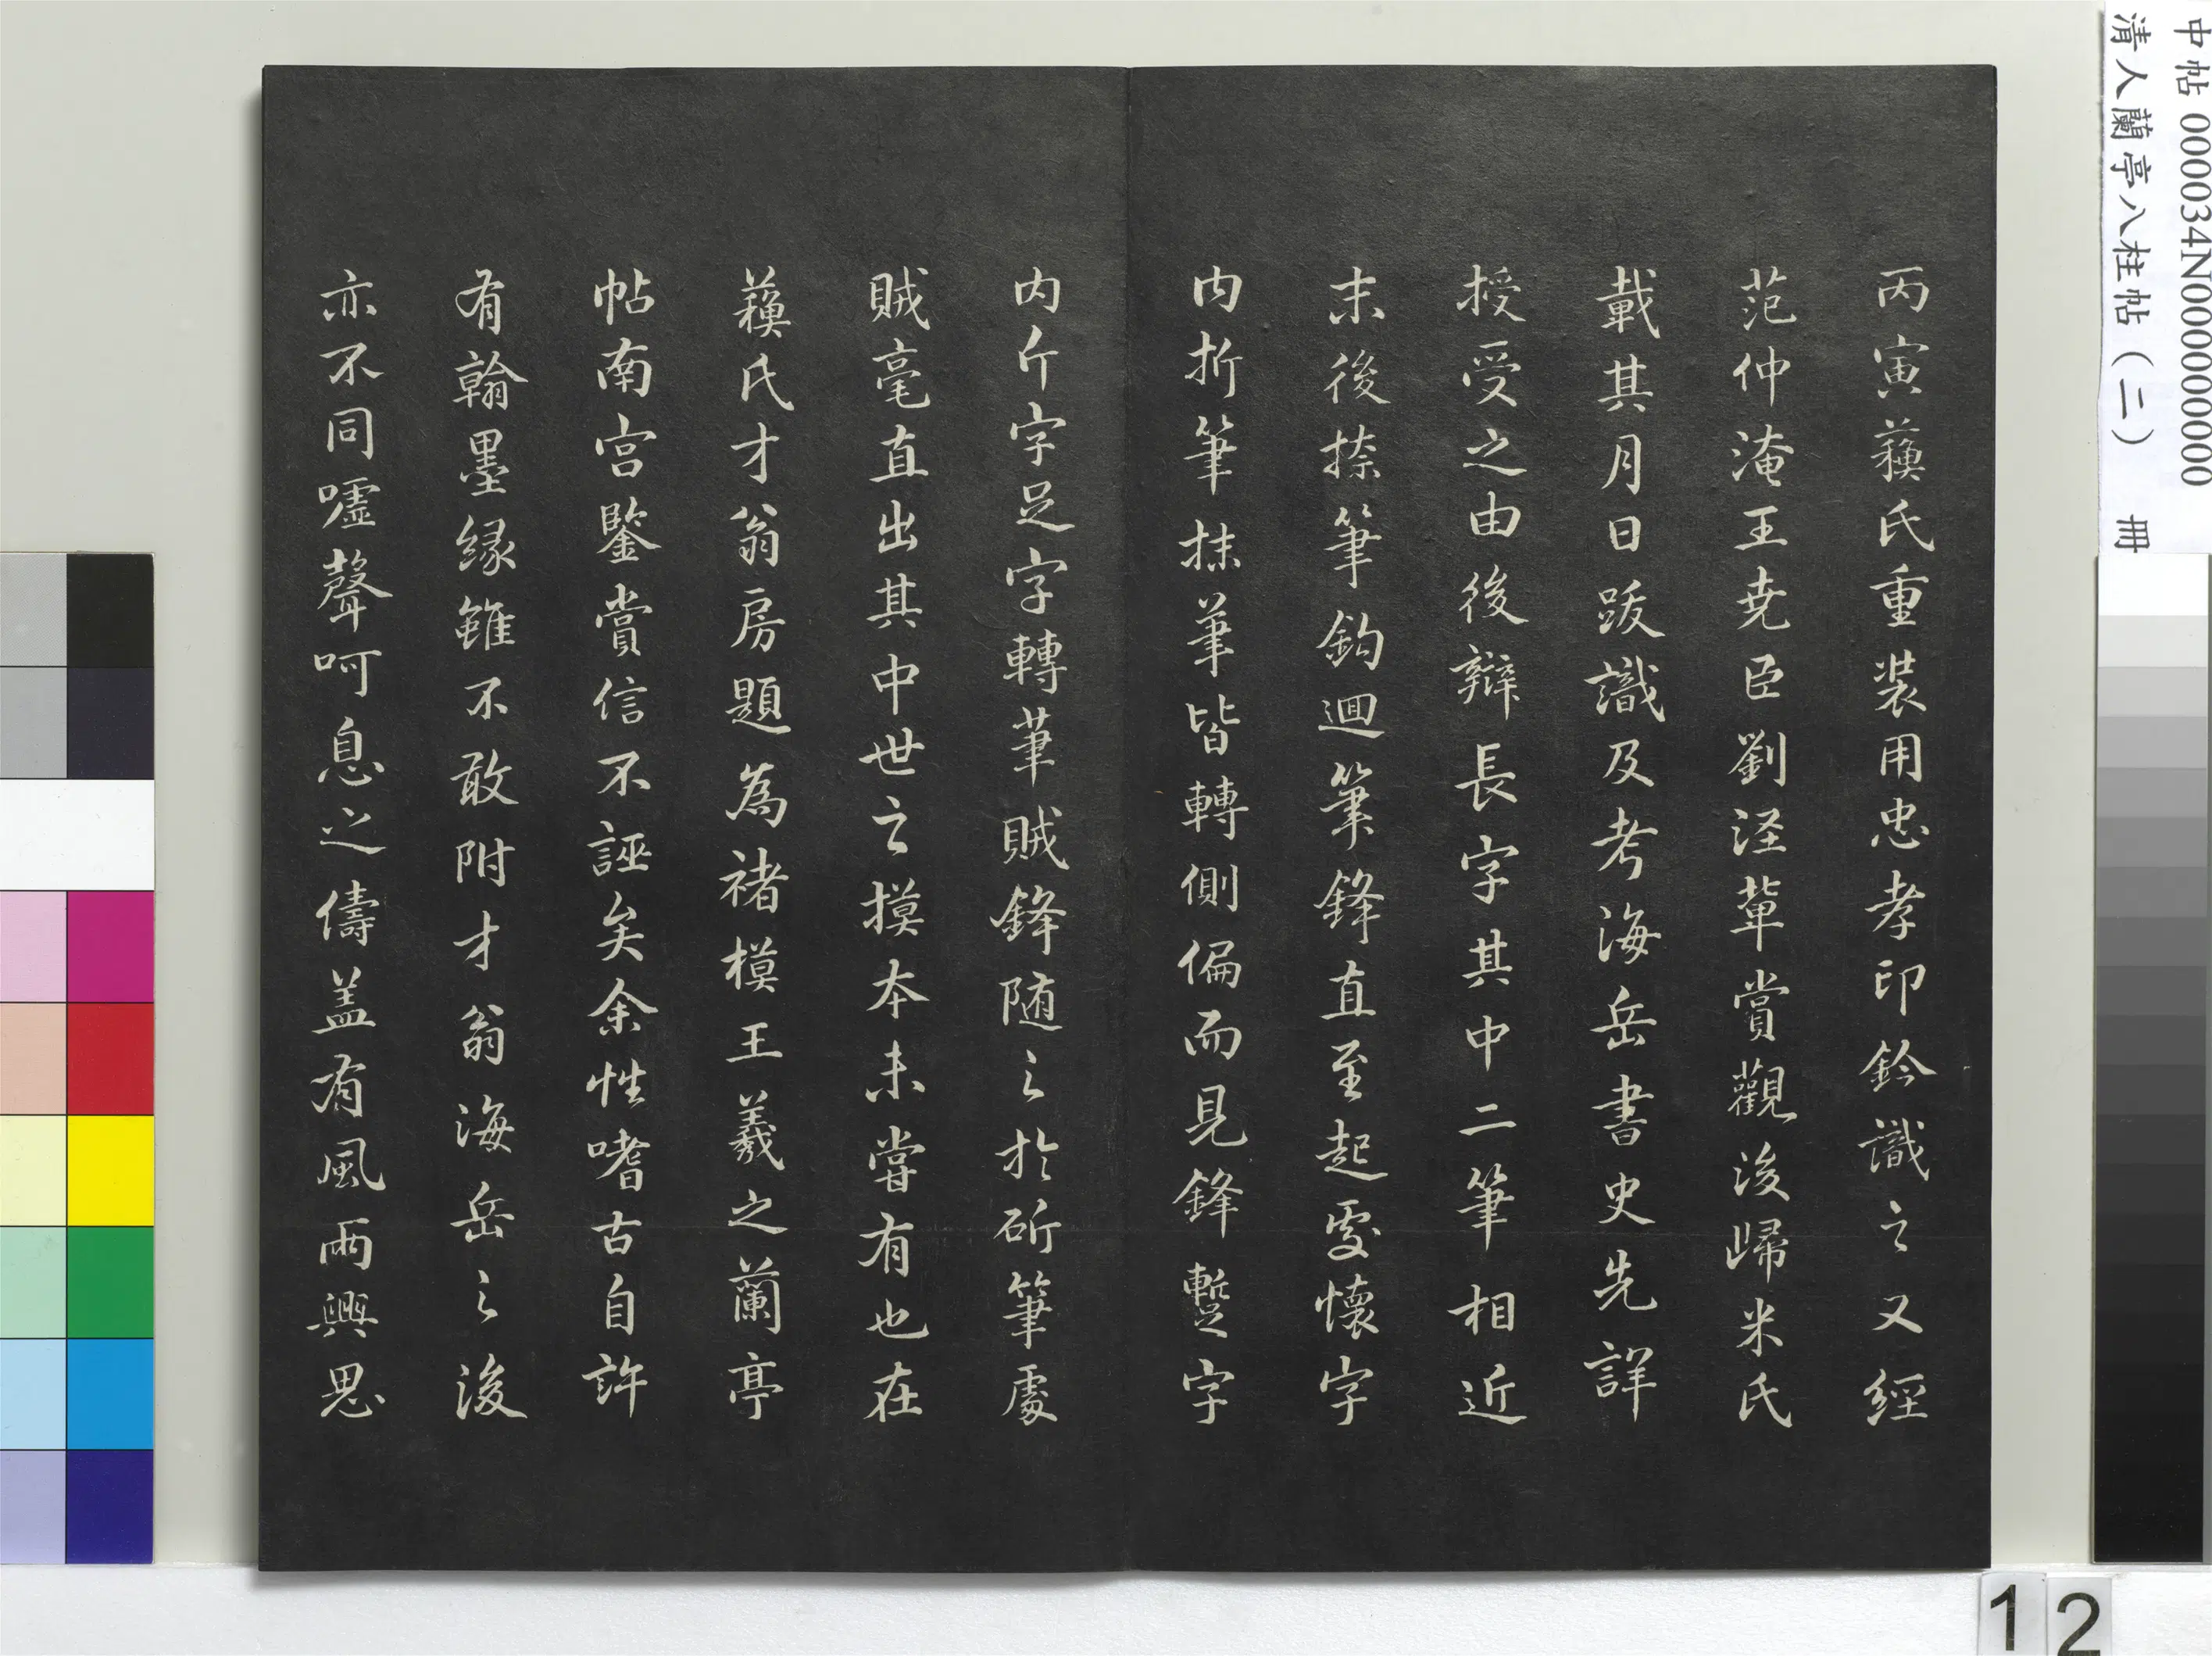 中帖 000034N000000000
清人蘭亭八柱帖（二） 冊
丙寅蘓氏重装用忠孝印鈐識之又經
范仲淹王尭臣劉泾軰賞觀後歸米氏
載其月日跋識及考海岳書史先詳
授受之由後辯長字其中二筆相近
末後捺筆鈎迴筆鋒直至起處懷字
内折筆抹筆皆轉側偏而見鋒蹔字
内斤字足字轉筆賊鋒随之於斫筆處
賊毫直出其中世之摸本未嘗有也在
蘓氏才翁房題為褚模王羲之蘭亭
帖南宫鑒賞信不誣矣余性嗜古自許
有翰墨縁雖不敢附才翁海岳之後
亦不同嘘聲呵息之儔盖有風雨興思
12